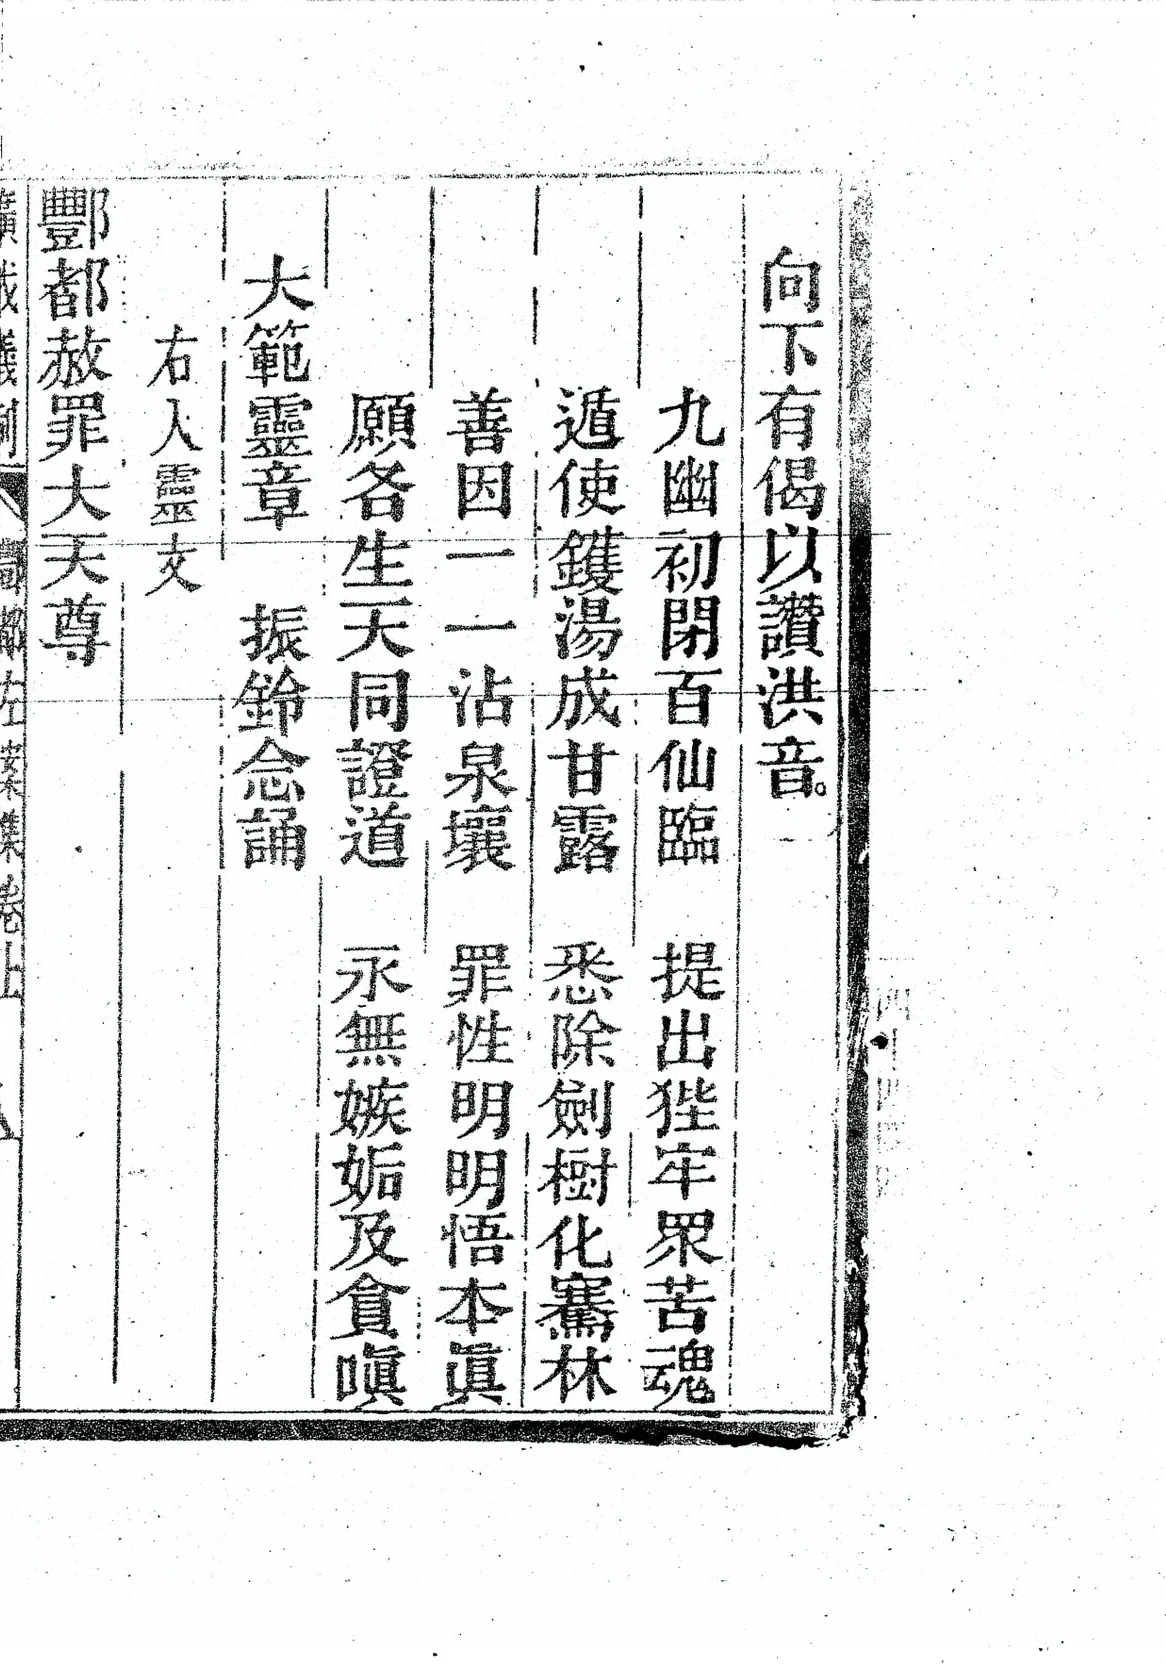 向下有偈以讚洪音。
九幽初閉百仙臨　提出狴牢眾苦魂
遁使鑊湯成甘露　悉除劍樹化騫林
善因一一沾泉壤　罪性明明悟本眞
願各生天同證道　永無嫉妬及貪嗔
大範靈章　振鈴念誦
右入靈文
酆都赦罪大天尊
廣成儀制　酆都左案集卷上